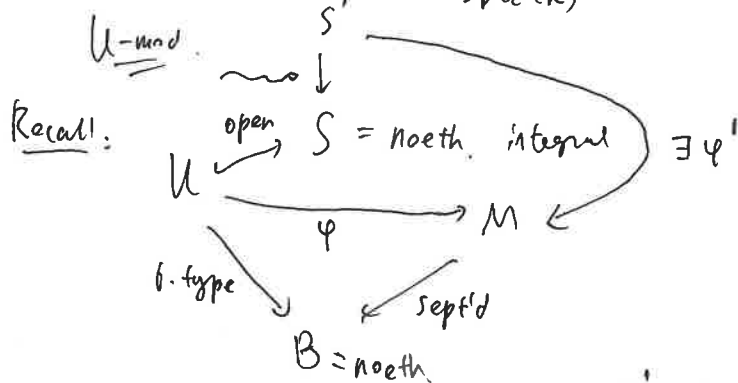 S'
U-mod.
Recall:
open
S = noeth. integral
∃ φ'
U
φ
M
f. type
sept'd
B = noeth.